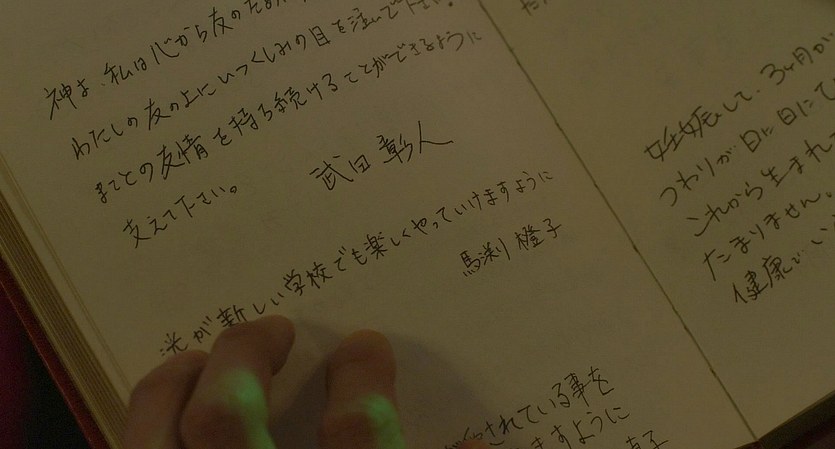 神よ、私は心から友のため
わたしの友の上にいつくしみの目を注いで下さい。
まことの友情を持ち続けることができるように
支えて下さい。
武田 彰人
光が新しい学校でも楽しくやっていけますように
馬渕 橙子
されている事を
ますように
妊娠して、3ヶ月が
つわりが日に日に
これから生まれ
たまりません。
健康で